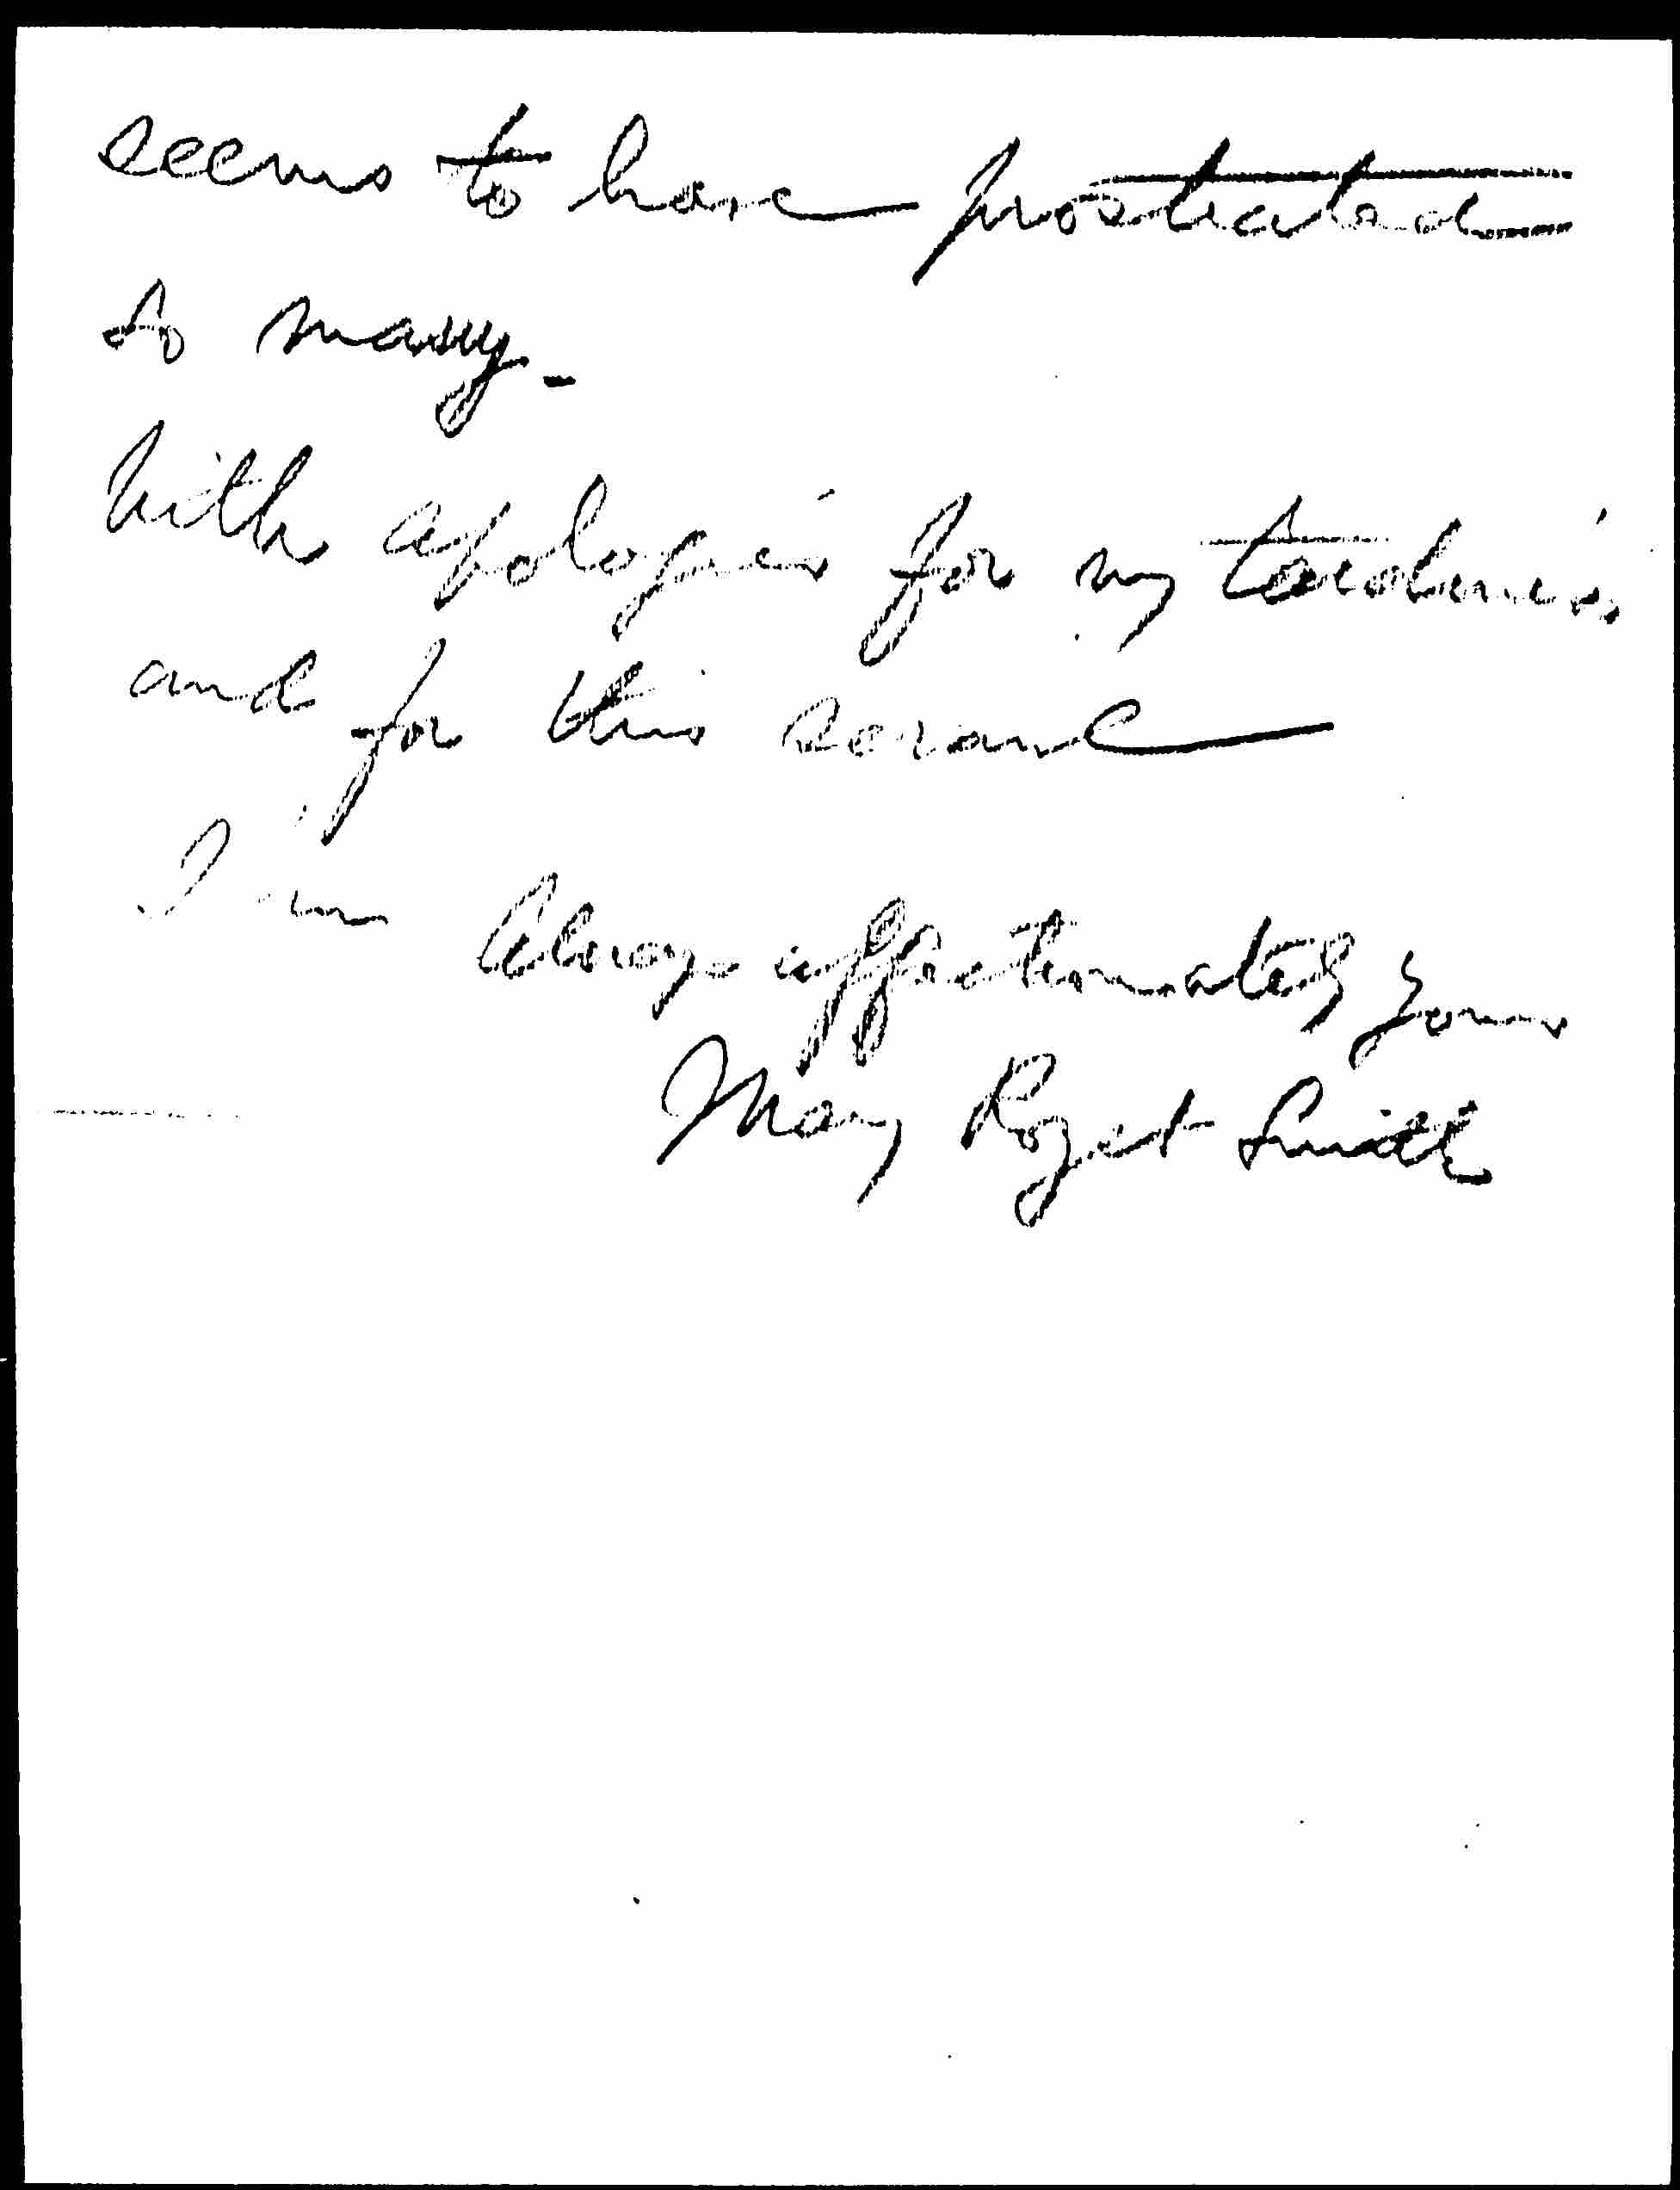 seems to have prostrated
so many -
With apologies for my tardiness
and for this scrawl
I am always affectionately yours
Mary Rozet Smith